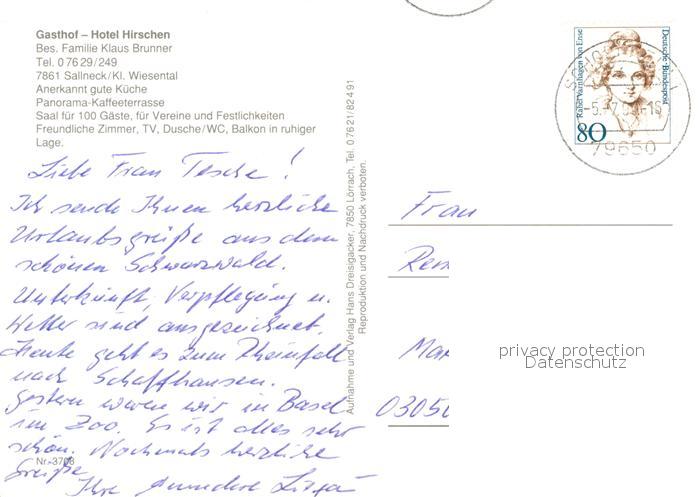 Gasthof – Hotel Hirschen
Bes. Familie Klaus Brunner
Tel. 0 76 29 / 249
7861 Sallneck / Kl. Wiesental
Anerkannt gute Küche
Panorama-Kaffeeterrasse
Saal für 100 Gäste, für Vereine und Festlichkeiten
Freundliche Zimmer, TV, Dusche / WC, Balkon in ruhiger
Lage.
Liebe Frau Tesche!
Ich sende Ihnen herzliche
Urlaubsgrüße aus dem
schönen Schwarzwald.
Unterkunft, Verpflegung u.
Wetter sind ausgezeichnet.
Heute geht es zum Rheinfall
nach Schaffhausen.
Gestern waren wir in Basel
im Zoo. Es ist alles sehr
schön. Nochmals herzliche
Grüße
Ihre
Nr. 3703
Aufnahme und Verlag Hans Dreisigacker, 7850 Lörrach, Tel. 0 76 21 / 8 24 91
Reproduktion und Nachdruck verboten.
Rahel Varnhagen von Ense
Deutsche Bundespost
80
79650
Frau
0305
privacy protection
Datenschutz